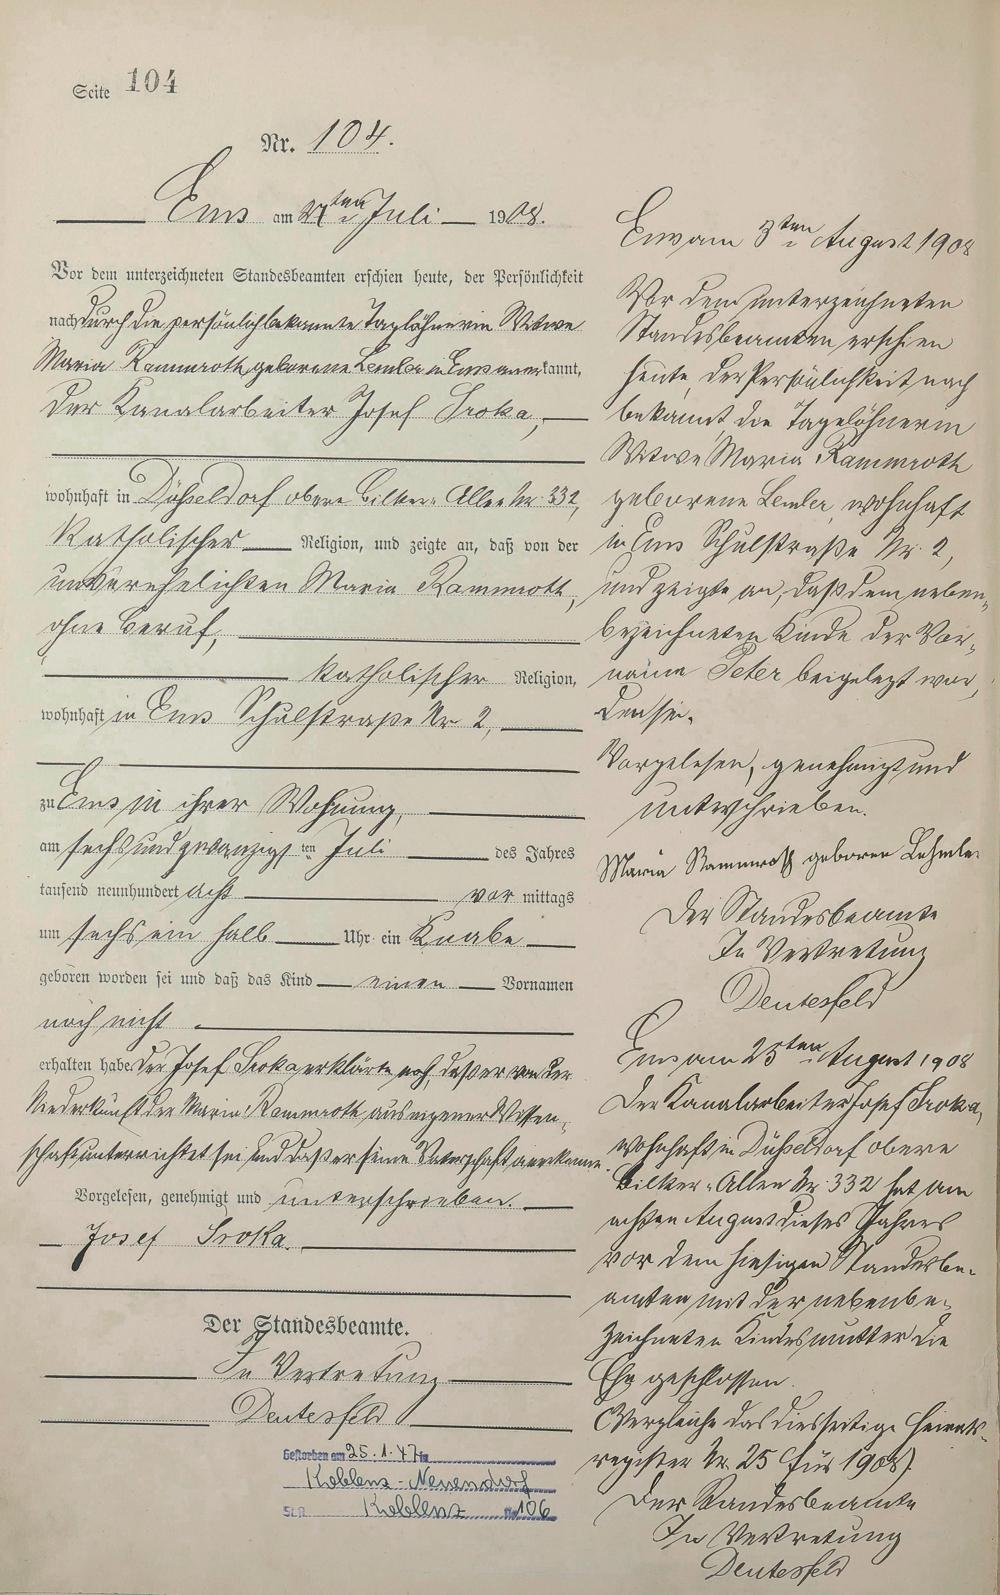 Seite 104
Nr. 104.
Ems am ten Juli 1908.
Vor dem unterzeichneten Standesbeamten erschien heute, der Persönlichkeit
nach durch die persönlich bekannte Taglöhnerin Witwe
Maria Rammroth geborene Lemler in Ems anerkannt,
der Kanalarbeiter Josef Sroka,
wohnhaft in Düsseldorf obere Bilker-Allee Nr. 332,
katholischer Religion, und zeigte an, daß von der
unverehelichten Maria Rammroth,
ohne Beruf,
katholischer Religion,
wohnhaft in Ems Schulstraße Nr. 2,
zu Ems in ihrer Wohnung,
am sechsundzwanzigsten Juli des Jahres
tausend neunhundert acht vor mittags
um sechs ein halb Uhr ein Knabe
geboren worden sei und daß das Kind einen Vornamen
noch nicht
erhalten habe. Der Josef Sroka erklärte noch, daß er von der
Niederkunft der Maria Rammroth aus eigener Wissen-
schaft unterrichtet sei und daß er seine Vaterschaft anerkenne.
Vorgelesen, genehmigt und unterschrieben.
Josef Sroka.
Der Standesbeamte.
In Vertretung
Deutesfeld
Gestorben am 25.1.47 in
Koblenz-Neuendorf
StA Koblenz Nr 106
Ems am 3ten August 1908
Vor dem unterzeichneten
Standesbeamten erschien
heute, der Persönlichkeit nach
bekannt, die Tagelöhnerin
Witwe Maria Rammroth
geborene Lemler, wohnhaft
in Ems Schulstraße Nr. 2,
und zeigte an, daß dem neben-
bezeichneten Kinde der Vor-
name Peter beigelegt wor-
den sei.
Vorgelesen, genehmigt und
unterschrieben.
Maria Rammroth geboren Lehmler
Der Standesbeamte
In Vertretung
Deutesfeld
Ems am 25ten August 1908
Der Kanalarbeiter Josef Sroka,
wohnhaft in Düsseldorf obere
Bilker-Allee Nr. 332 hat am
achten August dieses Jahres
vor dem hiesigen Standesbe-
amten mit der nebenbe-
zeichneten Kindesmutter die
Ehe geschlossen.
(Vergleiche das diesseitige Heirats-
register Nr. 25 für 1908).
Der Standesbeamte
In Vertretung
Deutesfeld